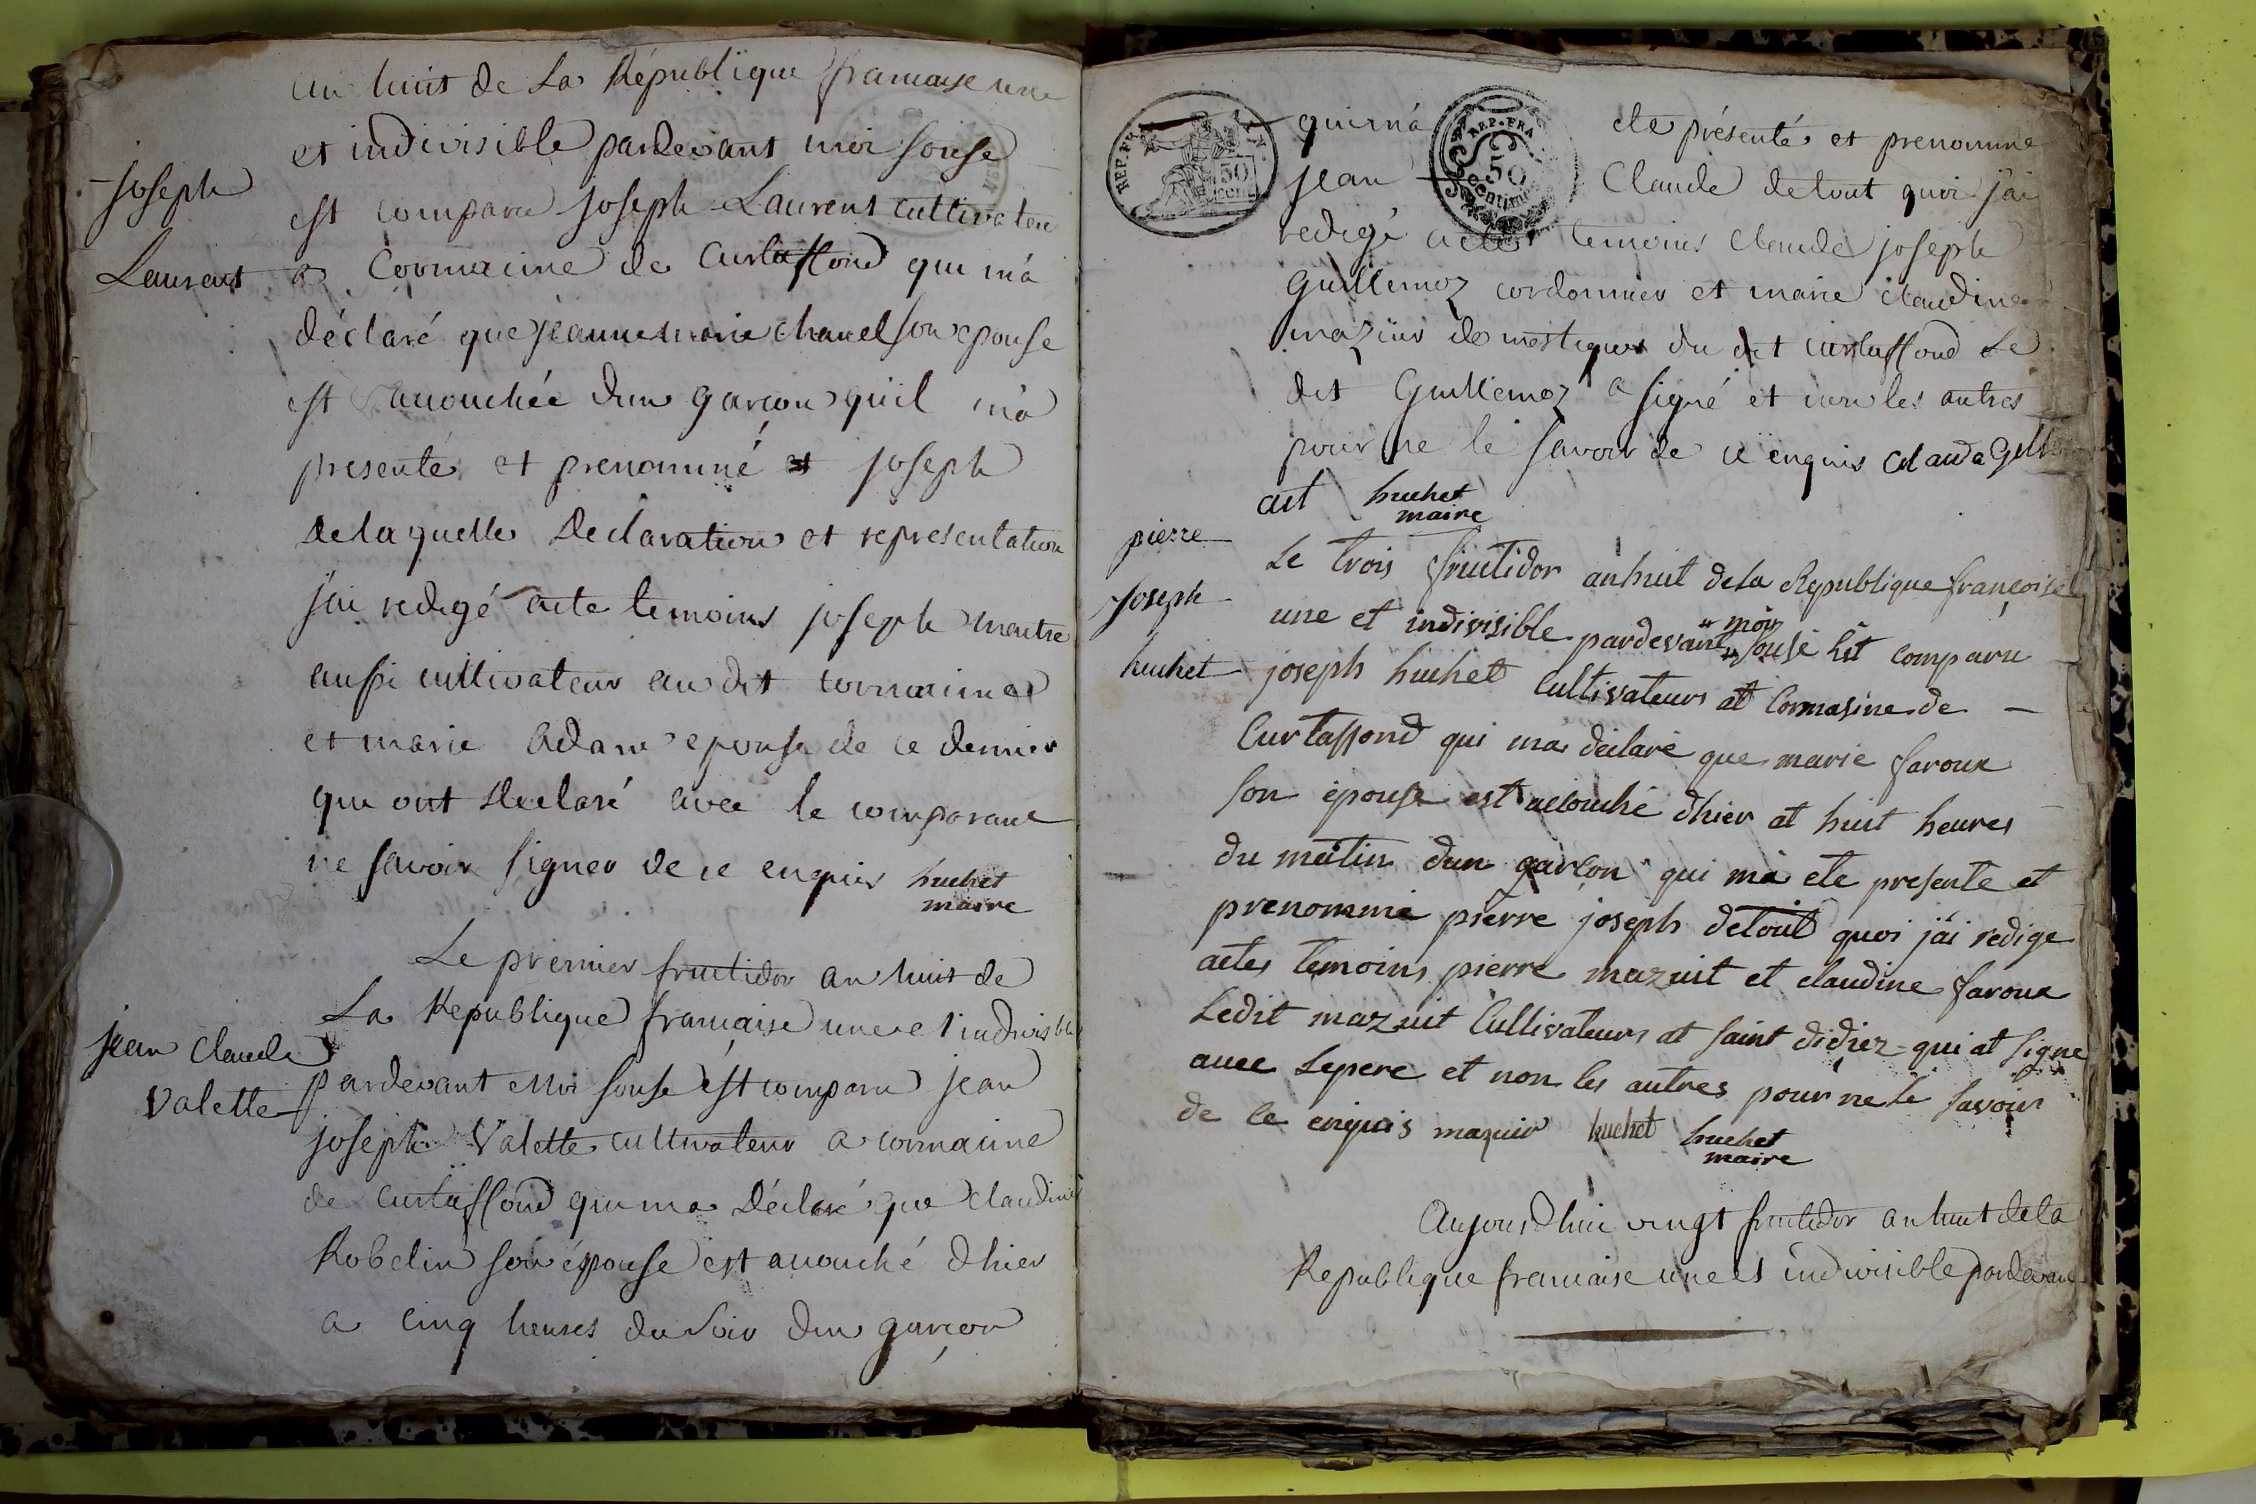 an huit de La République francaise une
et indivisible pardevant moi sousé
est comparu joseph Laurent cultivateur
joseph
Laurent
a Cormacine de Curtaffond qui m'a
déclaré que jeanne marie chanel son epouse
est accouchée d'un garcon qu'il m'a
presenté et prenommé joseph
de laquelle declaration et representation
j'ai redigé acte temoins joseph
aussi cultivateur au dit cormacine
et marie Adam epouse de ce dernier
qui ont declaré avec le comparant
ne savoir signer de ce enquis huchet
maire
Le premier fructidor an huit de
La Republique francaise une et indivisible
jean claude
valette
pardevant Moi sousé est comparu jean
joseph Valette cultivateur a cormacine
de curtaffond qui m'a déclaré que claudine
Robelin son épouse est accouché d'hier
a cinq heures du soir d'un garcon
REP. FRA
50
cent
REP. FRA
50
centim
qui m'a ete présenté et prenommé
jean Claude de tout quoi j'ai
redigé acte temoins claude joseph
Guillemoz cordonnier et marie claudine
domestique du dit curtaffond Le
dit Guillemoz a signé et non les autres
pour ne le savoir de ce enquis
huchet
maire
pierre
joseph
huchet
Le trois fructidor an huit de la Republique françoise
une et indivisible pardevant moi sousé Est comparu
joseph huchet Cultivateur at Cormasine de
Curtaffond qui ma déclaré que marie faroux
son épouse est accouché dhier at huit heures
du matin dun garcon qui ma ete presente et
prenommé pierre joseph detout quoi jai redige
actes temoins pierre mazuit et claudine faroux
Ledit mazuit Cultivateur at saint didiez qui at signe
avec Lepere et non les autres pour ne le savoir
de ce enquis mazuir huchet huchet
maire
Aujourdhui vingt fructidor an huit de la
Republique francaise une et indivisible pardevant